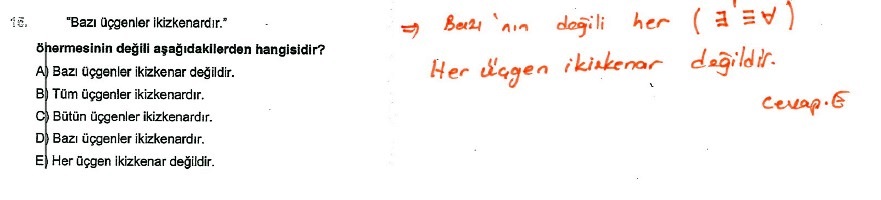 15. "Bazı üçgenler ikizkenardır."
önermesinin değili aşağıdakilerden hangisidir?
A) Bazı üçgenler ikizkenar değildir.
B) Tüm üçgenler ikizkenardır.
C) Bütün üçgenler ikizkenardır.
D) Bazı üçgenler ikizkenardır.
E) Her üçgen ikizkenar değildir.
⇒ Bazı'nın değili her (∃' ≡ ∀)
Her üçgen ikizkenar değildir.
cevap.E